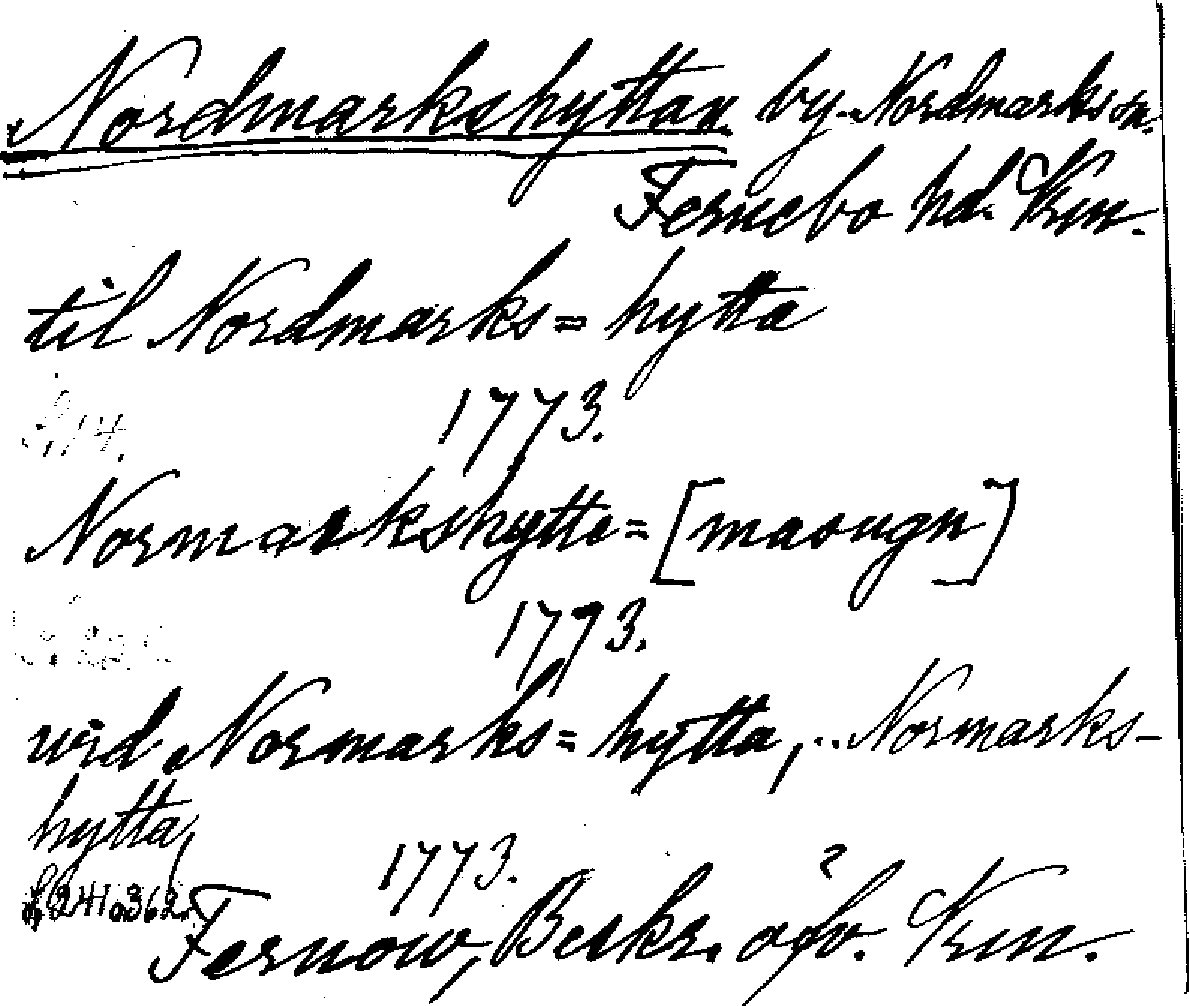 Nordmarkshyttan by. Nordmarks sn.
Fernebo hd. Vrm.
til Nordmarks= hytta
S. 14. 1773.
Normarkshytte= [masugn]
1773.
wid Normarks= hytta, .. Normarks-
hytta,
S. 241 o 362. 1773.
Fernow, Beskr. öfv. Vrm.